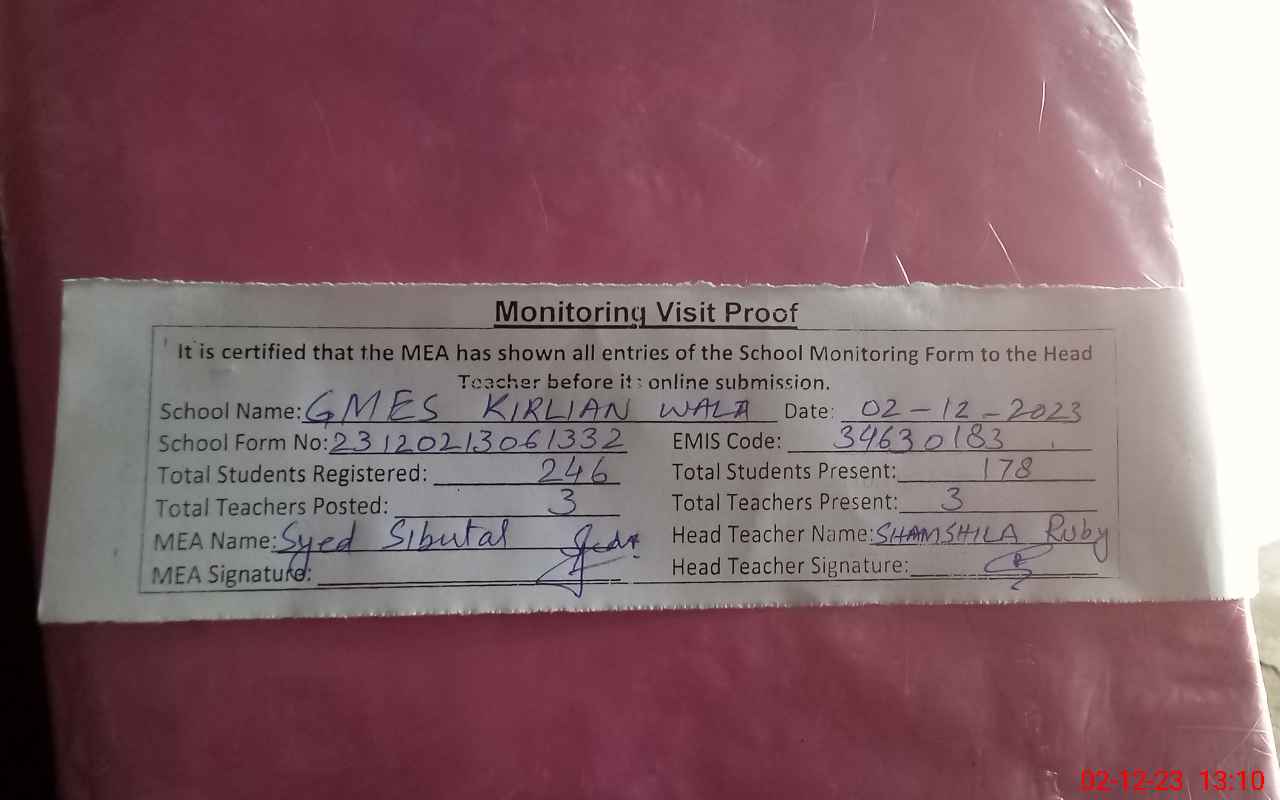 Monitoring Visit Proof
It is certified that the MEA has shown all entries of the School Monitoring Form to the Head
Teacher before its online submission.
School Name: GMES KIRLIAN WALA Date: 02-12-2023
School Form No: 23120213061332 EMIS Code: 34630183
Total Students Registered: 246 Total Students Present: 178
Total Teachers Posted: 3 Total Teachers Present: 3
MEA Name: Syed Sibutal Head Teacher Name: SHAMSHILA Ruby
MEA Signature: Head Teacher Signature:
02-12-23 13:10